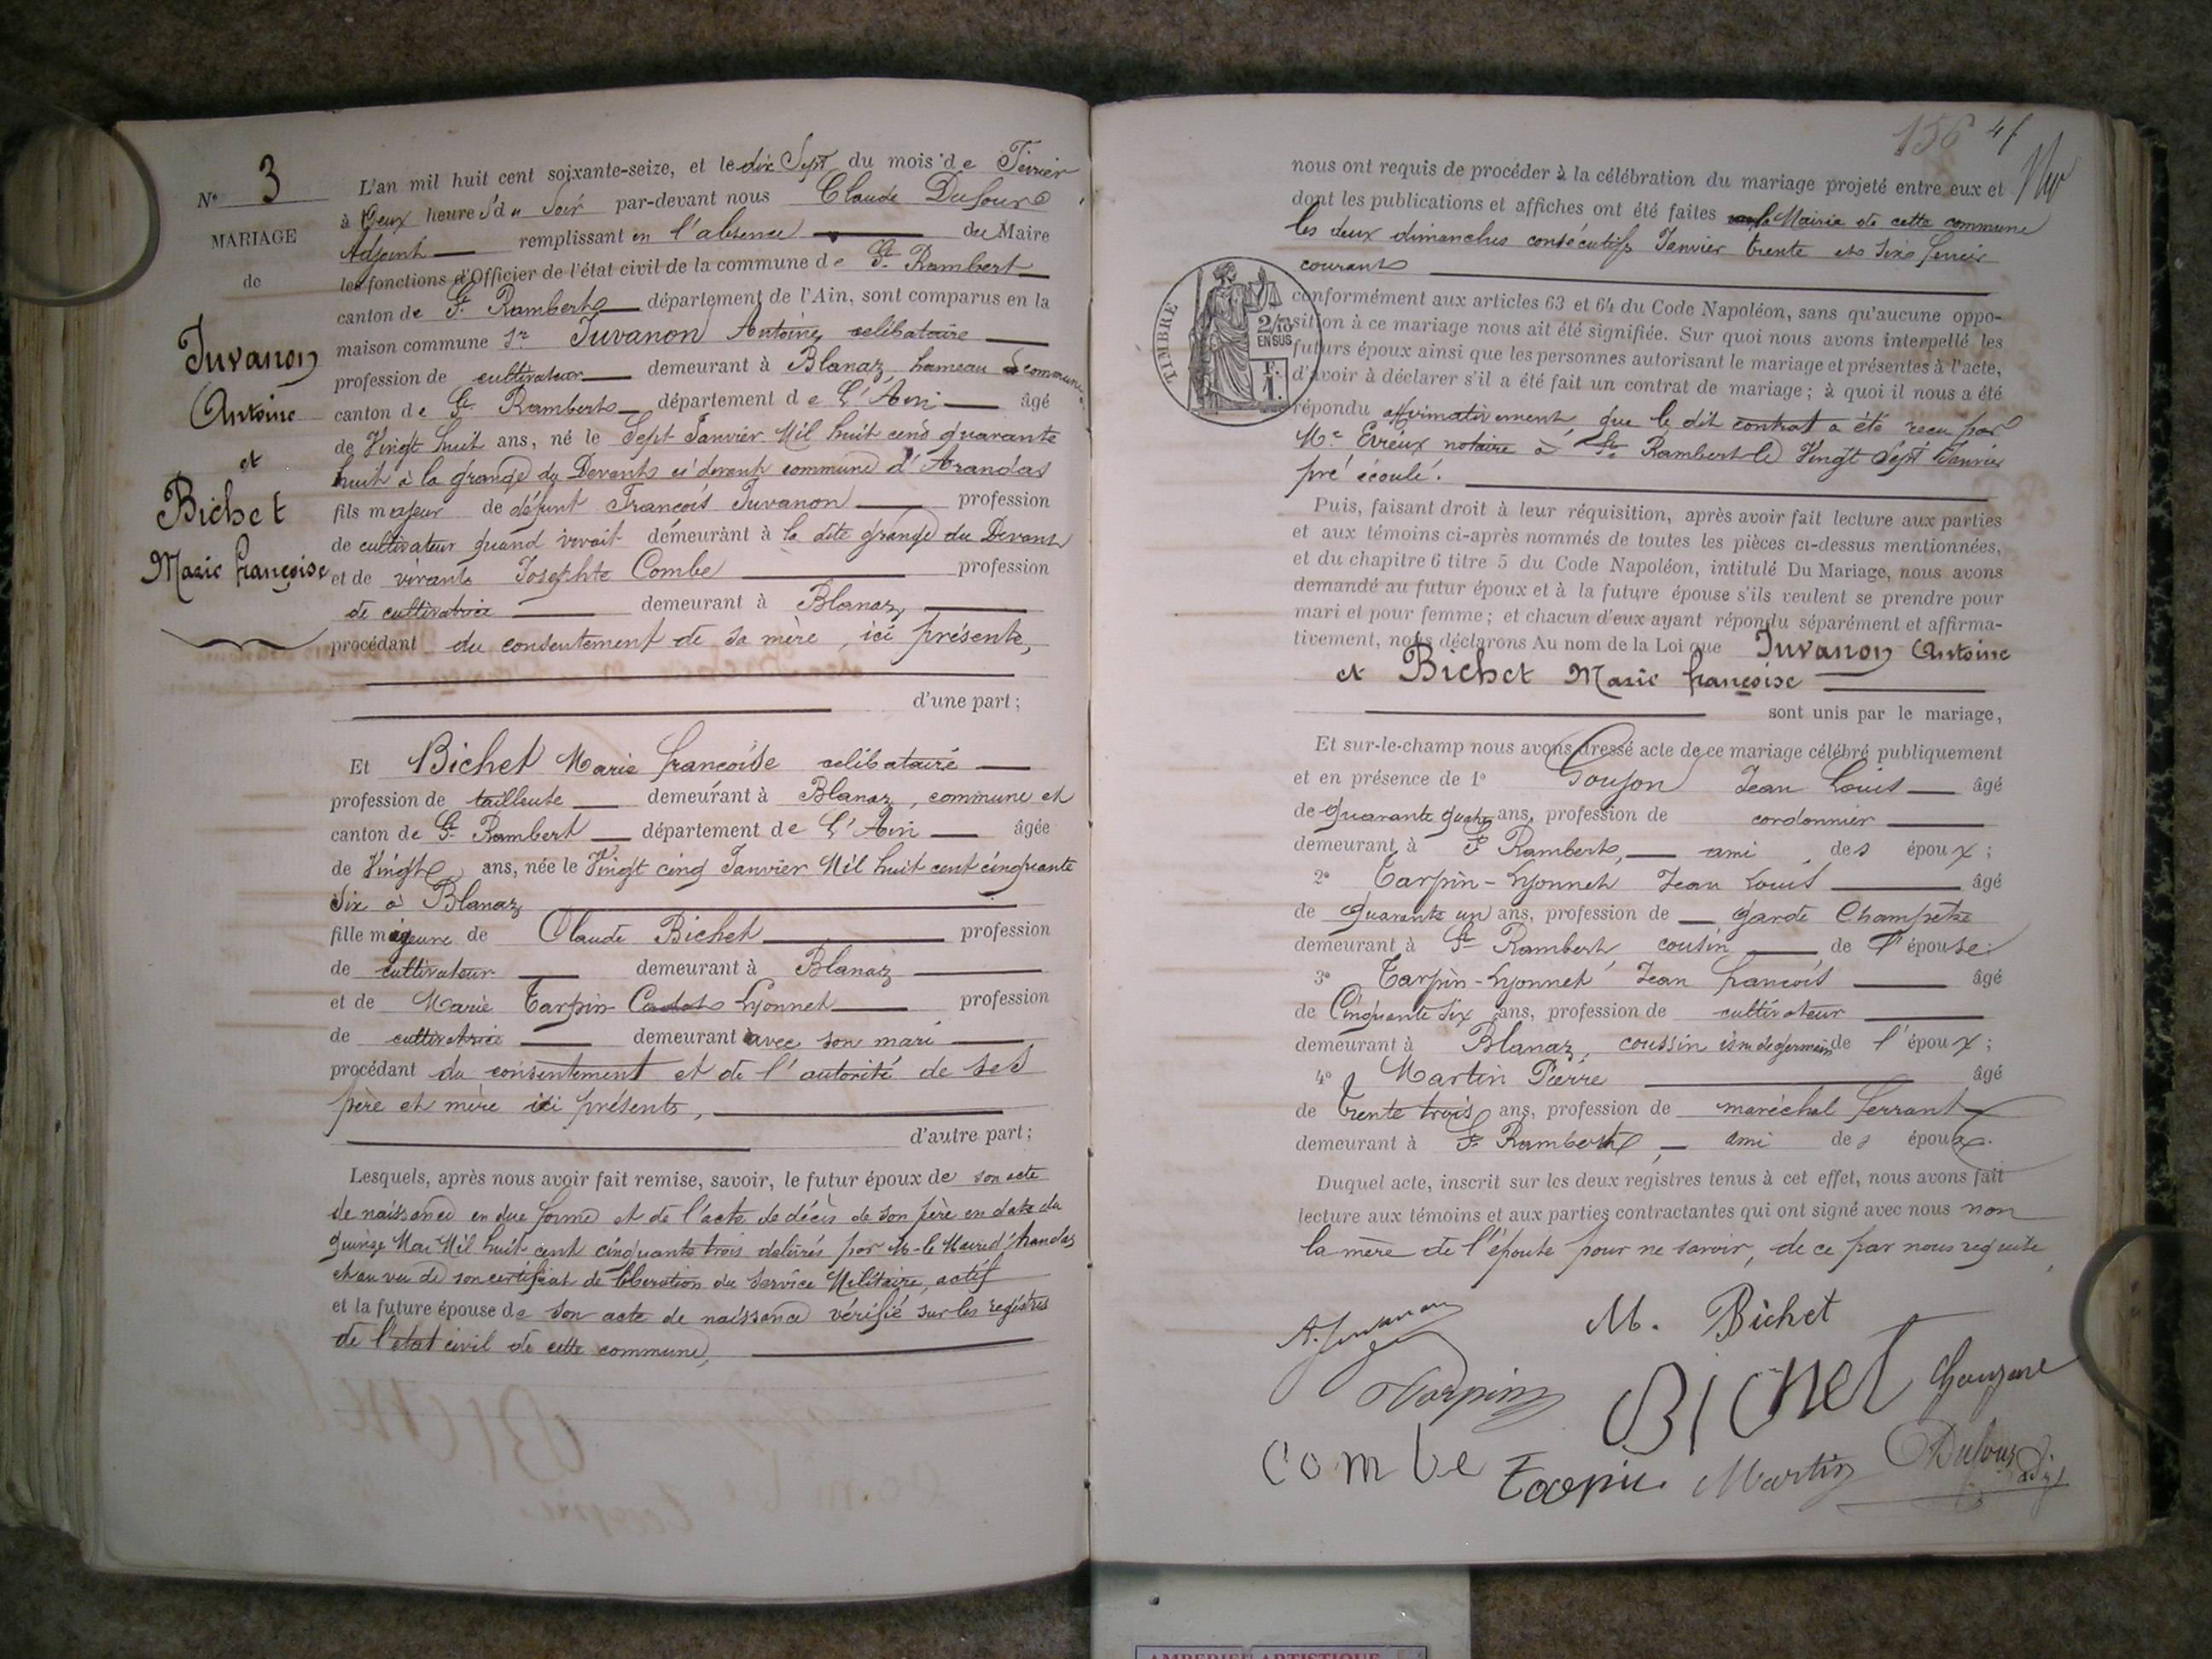 N° 3
MARIAGE
de
Juvanon
Antoine
et
Bichet
Marie françoise
L'an mil huit cent soixante-seize, et le dix Sept du mois de Février
à Deux heures du Soir par-devant nous Claude Dufour
Adjoint remplissant en l'absence du Maire
les fonctions d'Officier de l'état civil de la commune de St. Rambert
canton de St. Rambert département de l'Ain, sont comparus en la
maison commune Sr. Juvanon Antoine, célibataire
profession de cultivateur demeurant à Blanaz, hameau commune
canton de St. Rambert département de L'Ain âgé
de Vingt huit ans, né le Sept Janvier Mil huit cent quarante
huit à la grange du Devant ci devant commune d'Arandas
fils majeur de défunt François Juvanon profession
de cultivateur quand vivait demeurant à la dite grange du Devant
et de vivante Josephte Combe profession
de cultivatrice demeurant à Blanaz,
procédant du consentement de sa mère, ici présente,
d'une part;
Et Bichet Marie françoise célibataire
profession de tailleuse demeurant à Blanaz, commune et
canton de St. Rambert département de L'Ain âgée
de Vingt ans, née le Vingt cinq Janvier Mil huit cent cinquante
Six à Blanaz
fille majeure de Claude Bichet profession
de cultivateur demeurant à Blanaz
et de Marie Tarpin Lyonnet profession
de cultivatrice demeurant avec son mari
procédant du consentement et de l'autorité de ses
père et mère ici présents,
d'autre part;
Lesquels, après nous avoir fait remise, savoir, le futur époux de son acte
de naissance en due forme et de l'acte de décès de son père en date du
quinze Mai Mil huit cent cinquante trois délivrés par M. le Maire d'Arandas
et au vu de son certificat de libération du Service Militaire, actif
et la future épouse de son acte de naissance vérifié sur les registres
de l'état civil de cette commune,
156 41
nous ont requis de procéder à la célébration du mariage projeté entre eux et
dont les publications et affiches ont été faites la Mairie de cette commune
les deux dimanches consécutifs Janvier trente et Six février
courant
TIMBRE
2/10
EN SUS
F.
1.
conformément aux articles 63 et 64 du Code Napoléon, sans qu'aucune oppo-
sition à ce mariage nous ait été signifiée. Sur quoi nous avons interpellé les
futurs époux ainsi que les personnes autorisant le mariage et présentes à l'acte,
d'avoir à déclarer s'il a été fait un contrat de mariage; à quoi il nous a été
répondu affirmativement, que le dit contrat a été reçu par
Me Evreux notaire à St. Rambert le Vingt Sept Janvier
pré écoulé.
Puis, faisant droit à leur réquisition, après avoir fait lecture aux parties
et aux témoins ci-après nommés de toutes les pièces ci-dessus mentionnées,
et du chapitre 6 titre 5 du Code Napoléon, intitulé Du Mariage, nous avons
demandé au futur époux et à la future épouse s'ils veulent se prendre pour
mari et pour femme; et chacun d'eux ayant répondu séparément et affirma-
tivement, nous déclarons Au nom de la Loi que Juvanon Antoine
et Bichet Marie françoise
sont unis par le mariage,
Et sur-le-champ nous avons dressé acte de ce mariage célébré publiquement
et en présence de 1° Goujon Jean Louis âgé
de quarante quatre ans, profession de cordonnier
demeurant à St. Rambert, ami des époux;
2° Tarpin-Lyonnet Jean Louis âgé
de quarante un ans, profession de garde Champêtre
demeurant à St. Rambert, cousin de l'épouse;
3° Tarpin-Lyonnet Jean françois âgé
de Cinquante Six ans, profession de cultivateur
demeurant à Blanaz, coussin isru de germain de l'époux;
4° Martin Pierre âgé
de trente trois ans, profession de maréchal ferrant
demeurant à St. Rambert, ami des époux.
Duquel acte, inscrit sur les deux registres tenus à cet effet, nous avons fait
lecture aux témoins et aux parties contractantes qui ont signé avec nous non
la mère de l'épouse pour ne savoir, de ce par nous requise,
A. Juvanon M. Bichet
Tarpin BICHET
combe Tarpin Martin Dufour adj
AMBERIEU ARTISTIQUE